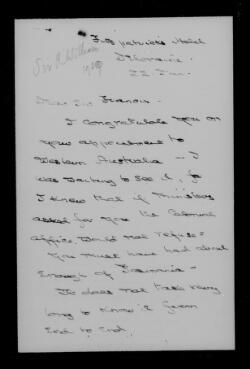 Fitzpatrick's Hotel
22 Jan.
Dear Sir Francis
I congratulate you on
your appointment to
Western Australia – I
was Waiting to see it, for
I knew that if Ministers
asked for you the Colonial
Office Would not refuse –
You must have had about
Enough of Tasmania –
It does not take very
long to know it from
End to End.